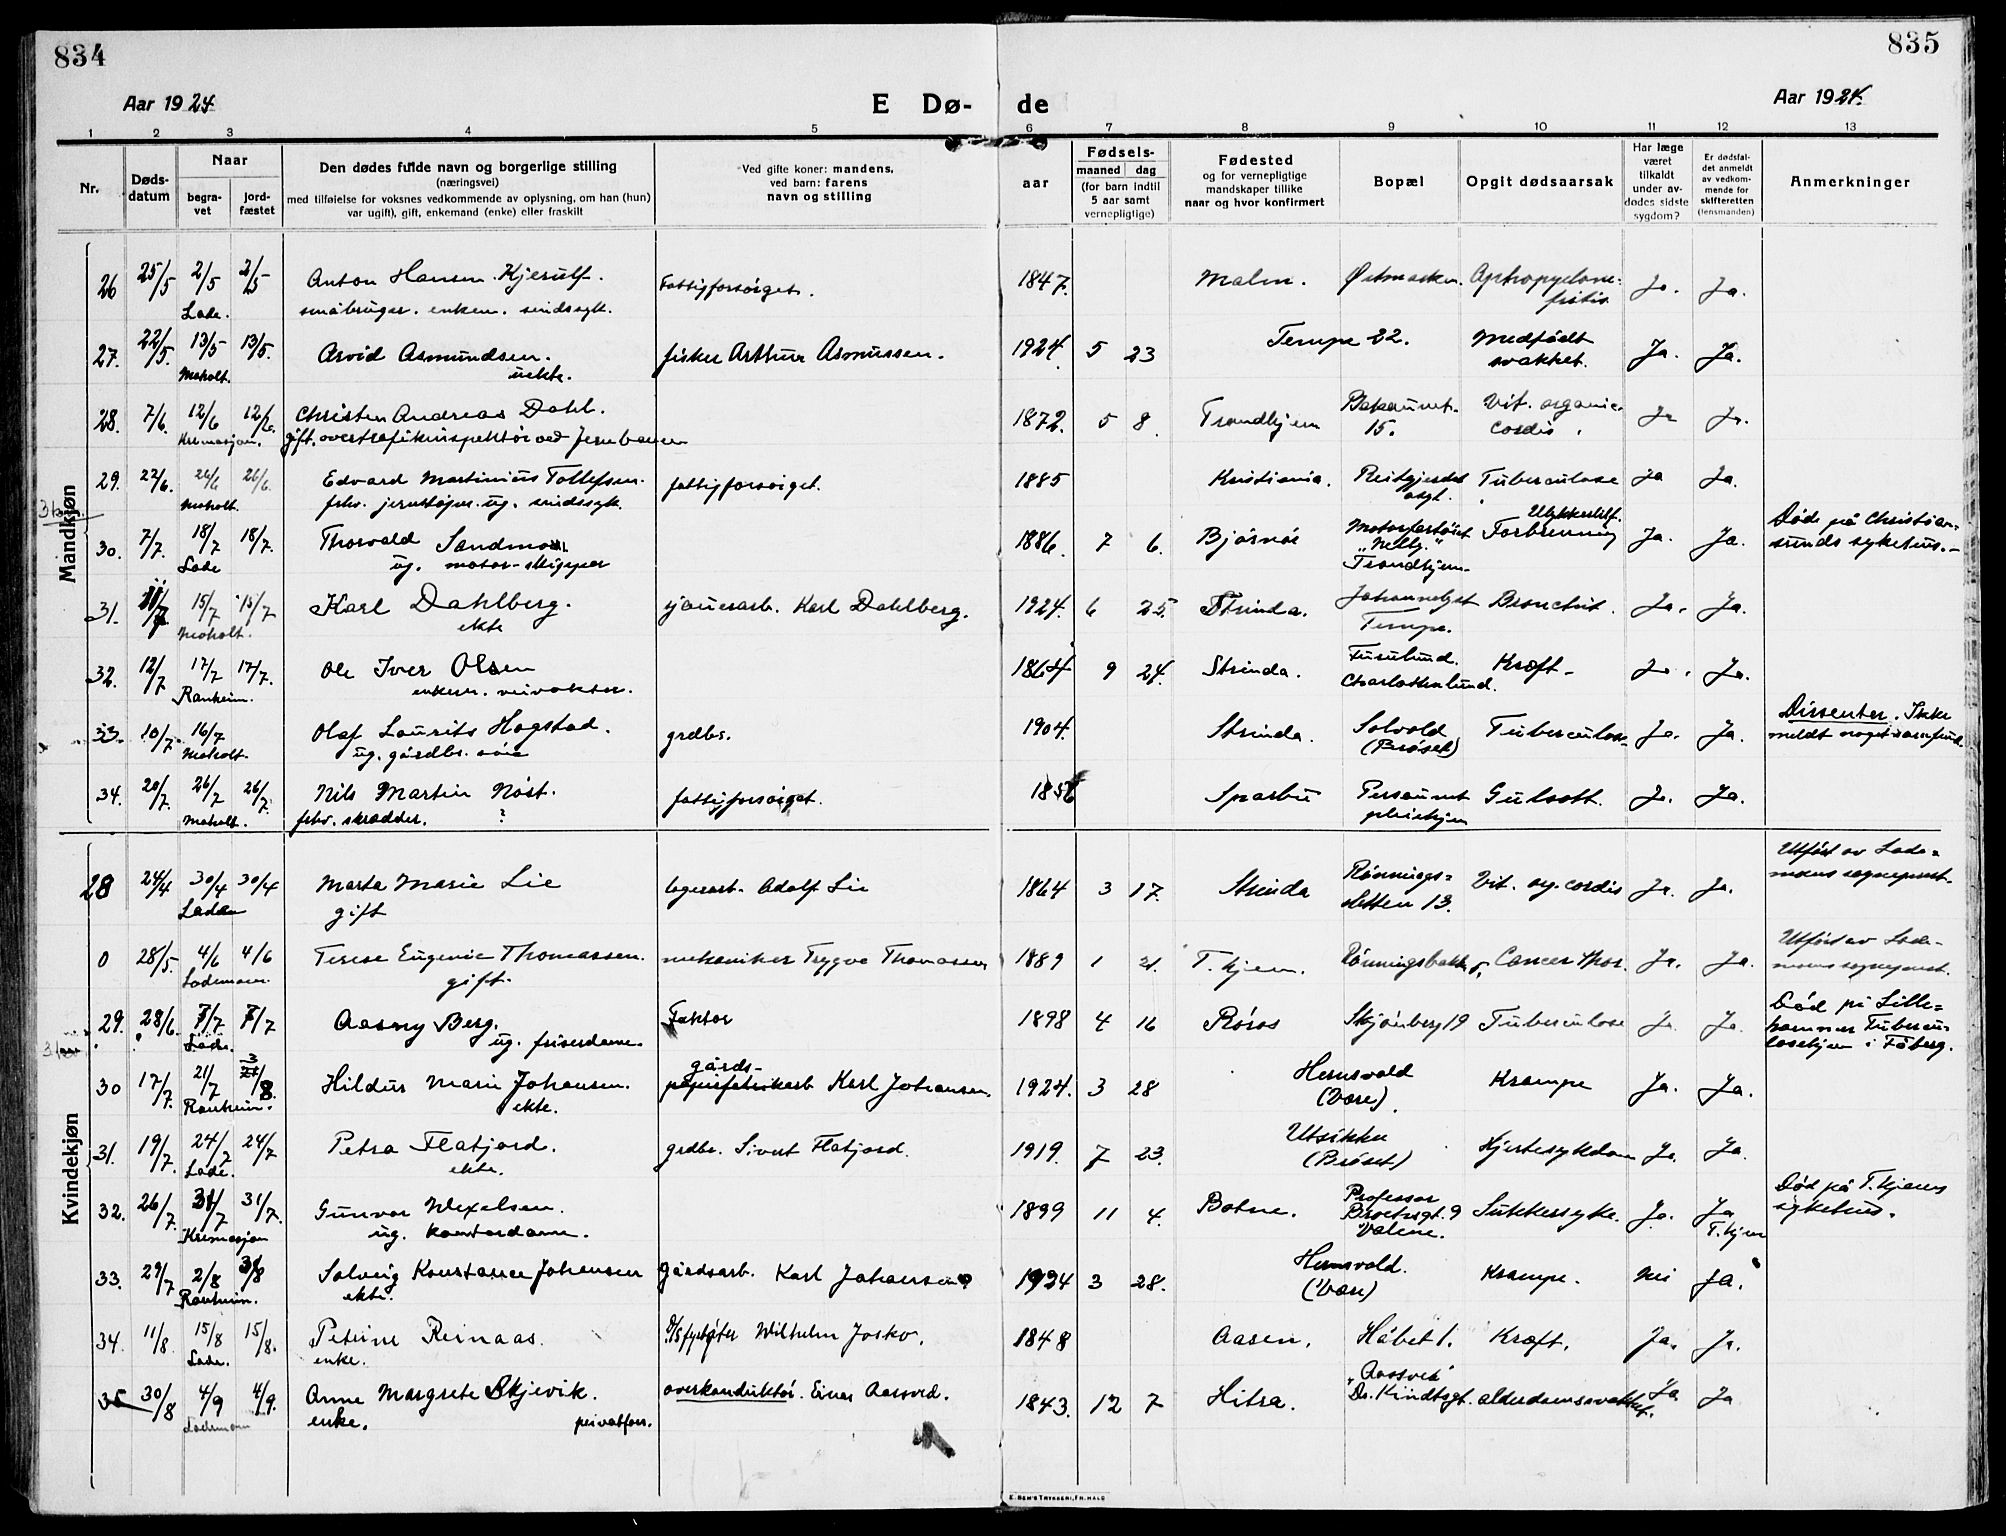 834
835
Aar 1924
E Dø- de
Aar 1924.
1 2 3 4 5 6 7 8 9 10 11 12 13
Nr.
Døds-
datum
Naar
begra-
vet
jord-
fæstet
Den dødes fulde navn og borgerlige stilling
(næringsvei)
med tilføielse for voksnes vedkommende av oplysning, om han (hun)
var ugift), gift, enkemand (enke) eller fraskilt
Ved gifte koner: mandens,
ved barn: farens
navn og stilling
aar
Fødsels-
maaned dag
(for barn indtil
5 aar samt
vernepligtige)
Fødested
og for vernepligtige
mandskaper tillike
naar og hvor konfirmert
Bopæl
Opgit dødsaarsak
Har læge
været
tilkaldt
under av-
dødes sidste
sygdom?
Er dødsfal-
det anmeldt
av vedkom-
mende for
skifteretten
(lensmanden)
Anmerkninger
Mandkjøn
26 25/5 2/5 2/5 Anton Hansen Kjerulf. Fattigforsørget. 1847. Malm. Østmarken. Ja. Ja.
Lade. småbruger. enkem. sindssyk.
27. 22/5 13/5 13/5. Arvid Asmundsen. fisker Arthur Asmussen. 1924. 5 23 Tempe 22. Medfødt Ja. Ja.
Moholt. uekte. svakhet.
28. 7/6. 12/6 12/6. Christen Andreas Dahl. 1872. 5 8. Trondhjem Bakaunet. Vit. organic. Ja Ja.
Kremasjon. gift. overtrafikinspektør ved Jernbanen 15. cordis.
29. 22/6. 26/6 26/6. Edvard Martinius Tollefsen. fattigforsørget. 1885 Kristiania. Reitgjerdet Tuberculose Ja Ja.
Moholt. fhv. ug. sindssyk. asyl.
30. 7/7. 18/7 18/7. Thorvald Sandmo 1886. 7 6. Bjørnør Motorfartøiet Ulykkestilf. Ja. Ja. Døde på Christian-
Lade ug. motor-skipper "Nelly." Forbrenning sunds sykehus.-
Trondhjem.
31. 11/7 15/7 15/7 Karl Dahlberg. sjauerarb. Karl Dahlberg. 1924. 6 25. Strinda. Bronchit. Ja. Ja.
Moholt. ekte Tempe.
32. 12/7 17/7 17/7. Ole Iver Olsen 1864 9 24. Strinda. Furulund. Kræft - Ja. Ja.
Ranheim. enkem. veivokter. Charlottenlund.
33. 10/7. 16/7 Olaf Laurits Hogstad. grdbr. 1904. Strinda. Solvold Tuberculose Ja. Ja. Dissenter. Ikke
Moholt. ug. gårdbr. søn (Brøset) meldt noget samfund.
34. 20/7. 26/7 26/7. Nils Martin Nøst. fattigforsørget. 1856 Sparbu Persaunet Gulsott. Ja. Ja.
Moholt. fhv. skrædder. ? pleiehjem
Kvindekjøn
28 24/4 30/4 30/4 Marta Marie Lie lagerarb. Adolf Lie 1864 3 17. Strinda Rønnings- Vit. og. cordis Ja. Ja. Utført av Lade-
Lade gift sletten 13. moens sogneprest.
0 28/5. 4/6 4/6 Terese Eugenie Thomassen. mekaniker Trygve Thomassen 1889 1 21. T.hjem. Rønningsbakk 5, Cancer Ja. Ja. Utført av Lade-
Lademoen gift. moens sogneprest.
29. 28/6. 7/7 7/7 Aasny Berg. Faktor 1898 4 16 Røros Skjønberg 19 Tuberculose Ja. Ja. Død på Lille-
Lade. ug. friserdame. hammer Tubercu-
losehjem i Fåberg.
30 17/7. 21/7 3/8. Hildur Marie Johansen. gårds- papirfabrikarb Karl Johansen. 1924. 3 28 Hemsvold Krampe Ja. Ja.
Ranheim. ekte. (Være).
31. 19/7. 24/7 24/7 Petra Flatjord. grdbr. Sivert Flatjord. 1919. 7 23. Utsikku Hjertesykdom Ja. Ja.
Lade. ekte. (Brøset)
32. 26/7. 31/7 31/7. Gunvor Wexelsen. 1899 11 4. Botne. Professor Sukkersyke. Ja. Ja Død på T.hjems
Kremasjon ug. kontordame. Brochsgt. 9 T.hjem sykehus.
33. 29/7 2/8 3/8 Solveig Konstance Johansen Gårdsarb. Karl Johansen 1924 3 28. Hemsvold. Krampe. Nei Ja.
Ranheim. ekte. (Være)
34. 11/8. 15/8 15/8. Petrine Reinaas. Wilhelm 1848 Aasen. Håbet 1. Kræft. Ja. Ja.
Lade. enke.
35 30/8 4/9 4/9. Anne Margrete Skjevik. overkonduktør. Einar Aarsvd. 1843. 12 7 Hitra. Dr. Kindtsgt. alderdomssvakhet. Ja Ja
Lademoen enke. privatfors.
E. SEM'S TRYKKERI, FR.HALD